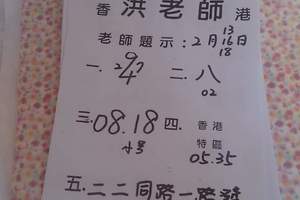 香 洪老師 港
老師題示：2月16日
13
18
一. 297
4
二. 八
02
三. 08.18 四. 香港
特區
05.35
五. 二二同路一路發